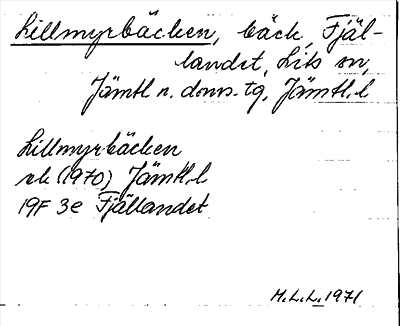 Lillmyrbäcken, bäck, Fjäl-
landet, Lits sn,
Jämtl n. doms. tg, Jämtl. l
Lillmyrbäcken
rk (1970) Jämtl. l
19F 3e Fjällandet
H.L.L. 1971